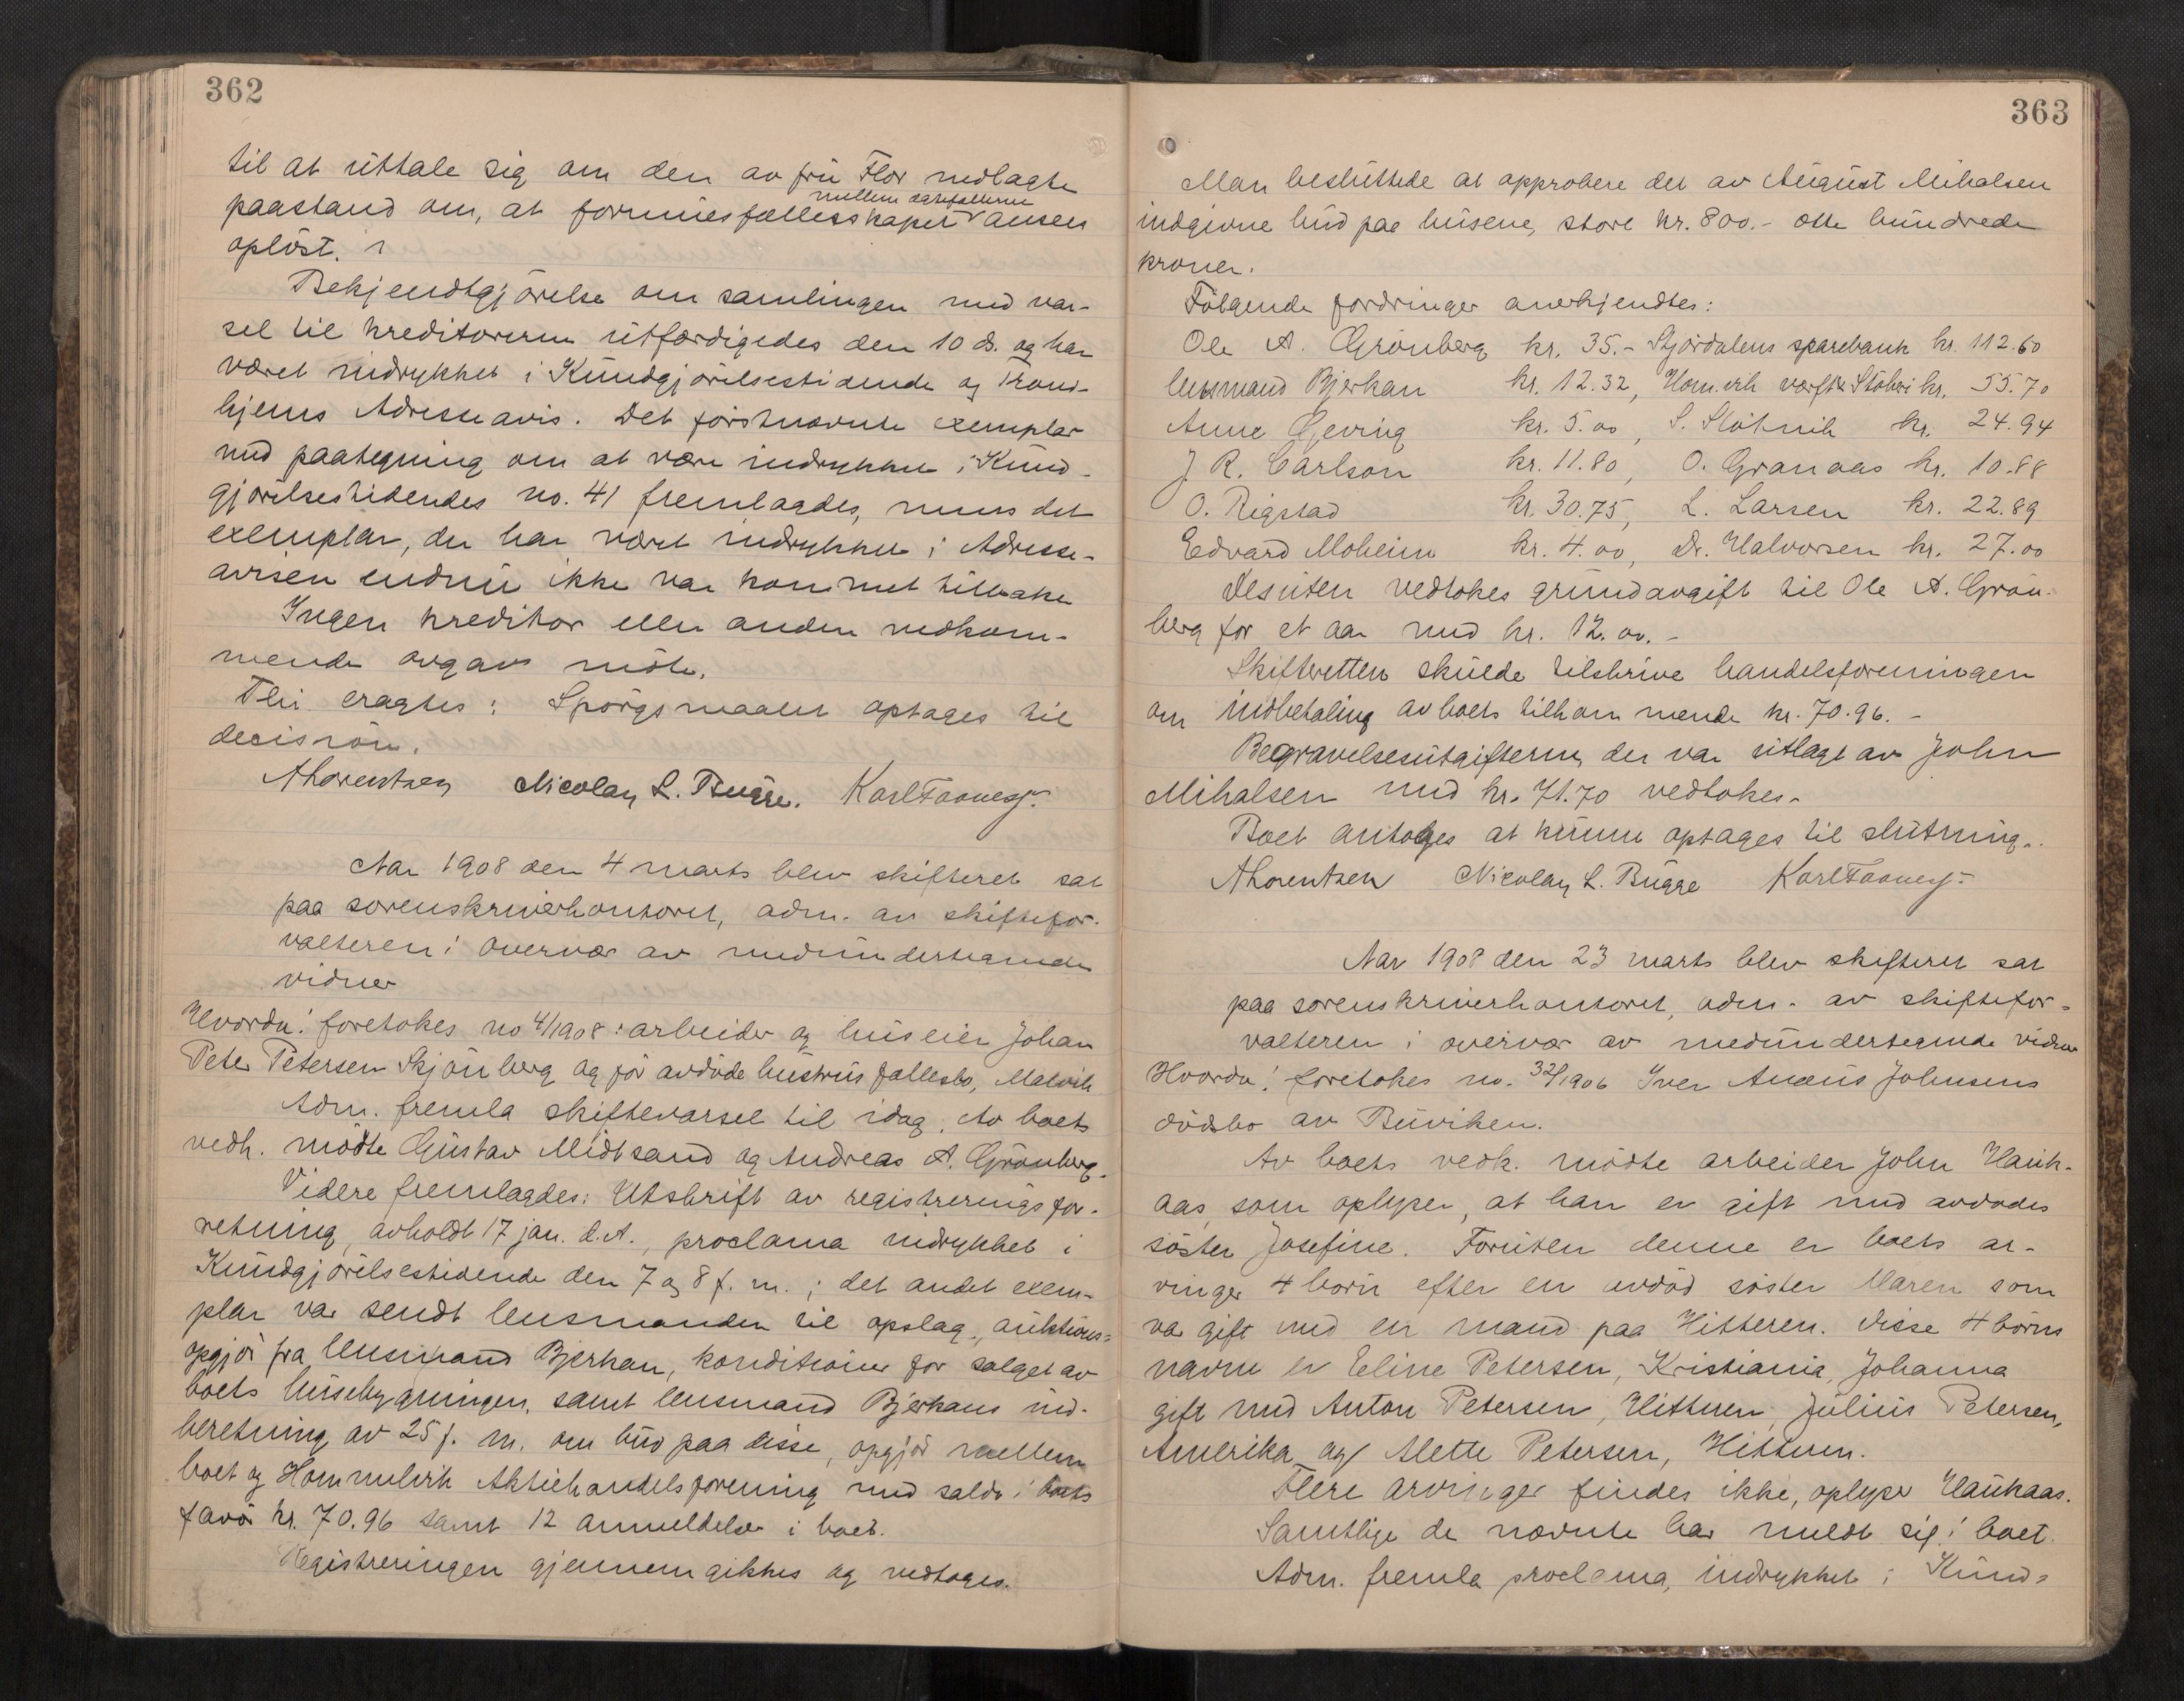 362
til at uttale sig om den av fru Flor nedlagte
mellem ægtefællerne
paastand om, at formuesfællesskapet ansees
opløst.
Bekjendtgjørelse om samlingen med var-
sel til kreditorerne utfærdigedes den 10 ds. og har
været indrykket i Kundgjørelsestidende og Trond-
hjems Adresseavis. Det førstnævnte exemplar
med paategning om at være indrykket i Kund-
gjørelsestidendes no. 41 fremlagdes, mens det
exemplar, der har været indrykket i Adresse-
avisen endnu ikke var kommet tilbake
Ingen kreditor eller anden vedkom-
mende avgav møte.
Thi eragtes: Spørgsmaalet optages til
decision.
ALorentzen Nicolay L. Bugge. Karl
Aar 1908 den 4 marts blev skifteret sat
paa sorenskriverkontoret, adm. av skiftefor-
valteren i overvær av medundertegnede
vidner
Hvorda! foretokes no 4/1908: arbeider og huseier Johan
Peter Petersen Skjønberg og før avdøde hustrus fællesbo, Malvik
Adm. fremla skiftevarsel til idag. Av boets
vedk. mødte Gustav Midtsand og Andreas A. Grønberg.
Videre fremlagdes: Utskrift av registreringsfor-
retning, avholdt 17 jan. d.A., proclama indrykket i
Kundgjørelsestidende den 7 og 8 f. m.; det andet exem-
plar var sendt lensmanden til opslag., auktions-
opgjør fra lensmand Bjerkan, konditioner for salget av
boets husebygninger, samt lensmand Bjerkans ind-
beretning av 25 f. m. om bud paa disse, opgjør mellem
boet og Hommelvik Aktiehandelsforening med saldo i boets
favør kr. 70.96 samt 12 anmeldelser i boet.
Registreringen gjennemgikkes og vedtoges.
363
Man besluttede at approbere det av August Mihalsen
indgivne bud paa husene, stort kr. 800.- otte hundrede
kroner.
Følgende fordringer anerkjendtes:
Ole A. Grønberg kr. 35.- Stjørdalens sparebank kr. 112.60
lensmand Bjerkan kr. 12.32, Hom.vik værft & Støberi kr. 55.70
Anne Gjeving kr. 5.00, S. Slotnik kr. 24.94
J R. Carlson kr. 11.80, O. Granaas kr. 10.88
O. Rigstad kr. 30.75, L. Larsen kr. 22.89
Edvard Moheim kr. 4.00, Dr. Halvorsen kr. 27.00
Desuten vedtokes grundavgift til Ole A. Grøn-
berg for et aar med kr. 12.00.-
Skifteretten skulde tilskrive handelsforeningen
om indbetaling av boets tilkommende kr. 70.96.-
Begravelsesutgifterne, der var utlagt av John
Mihalsen med kr. 71.70 vedtokes.
Boet antoges at kunne optages til slutning.
ALorentzen Nicolay L. Bugge Karl
Aar 1908 den 23 marts blev skifteret sat
paa sorenskriverkontoret, adm. av skiftefor-
valteren i overvær av medundertegnede vidner
Hvorda! foretokes no. 32/1906 Iver Anæus Johnsens
dødsbo av Buviken.
Av boets vedk. mødte arbeider John Hauk-
aas, som oplyser, at han er gift med avdødes
søster Josefine. Foruten denne er boets ar-
vinger 4 børn efter en avdød søster Maren som
var gift med en mand paa Hitteren. Disse 4 børns
navne er Eline Petersen, Kristiania, Johanna
gift med Anton Petersen, Hitteren, Julius Petersen,
Amerika og Alette Petersen, Hitteren.
Flere arvinger findes ikke, oplyser Haukaas.
Samtlige de nævnte har meldt sig i boet.
Adm. fremla proclama, indrykket i Kund-